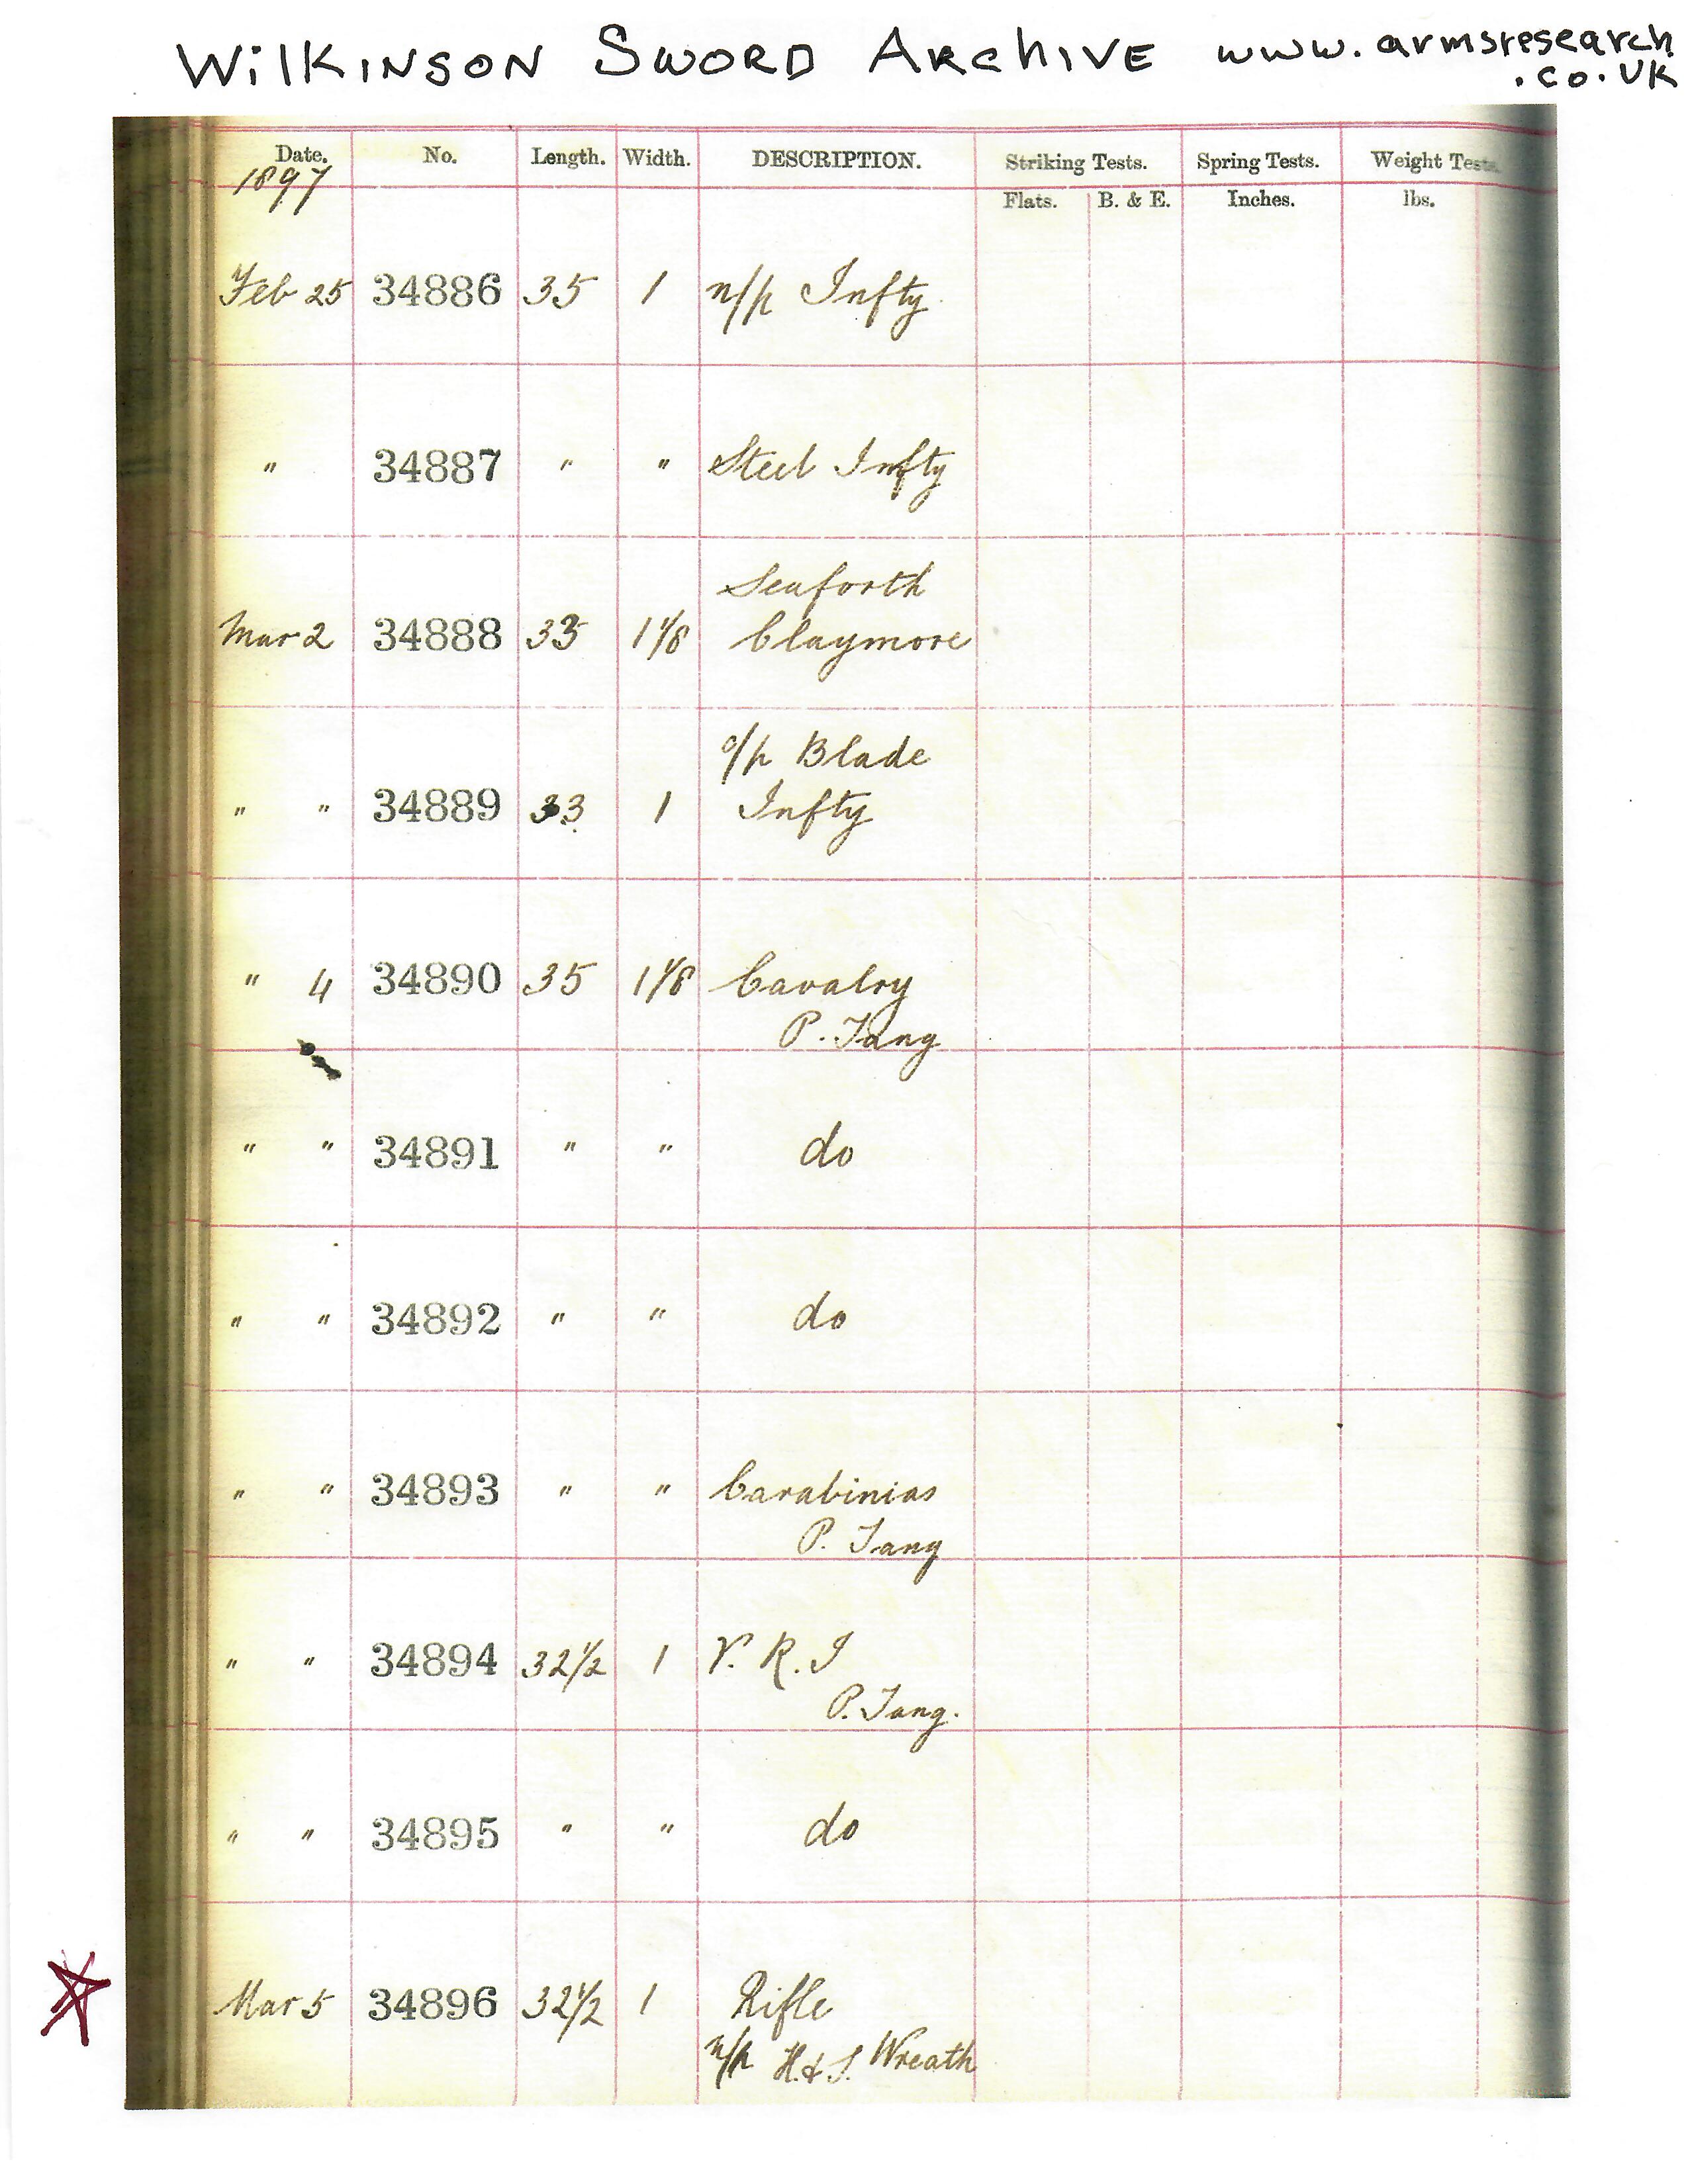 WILKINSON SWORD ARCHIVE www.armsresearch
.co.uk
Date. No. Length. Width. DESCRIPTION. Striking Tests. Spring Tests. Weight Tests.
1897 Flats. B. & E. Inches. lbs.
Feb 25 34886 35 1 n/p Infty.
" 34887 " " Steel Infty
Seaforth
Mar 2 34888 33 1 1/8 Claymore
o/p Blade
" " 34889 33 1 Infty
" 4 34890 35 1 1/8 Cavalry
P. Tang
" " 34891 " " do
" " 34892 " " do
" " 34893 " " Carabinias
P. Tang
" " 34894 32 1/2 1 V. R. I
P. Tang.
" " 34895 " " do
Mar 5 34896 32 1/2 1 Rifle
n/p H. & S. Wreath